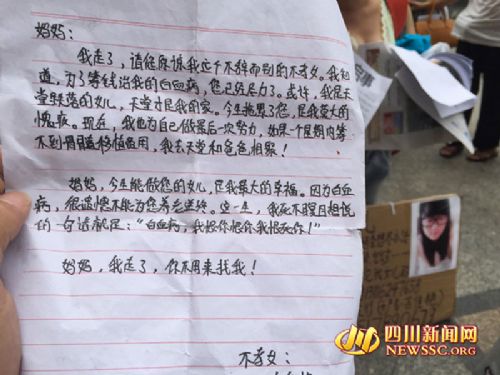 妈妈:
我走了,请您原谅我这个不辞而别的不孝女。我知
道,为了筹钱治我的白血病,您已经尽力了。或许,我是天
堂跌落的女儿,天堂才是我的家。今生拖累了您,是我莫大的
愧疚。现在,我也为自己做最后一次努力,如果一个星期内筹
不到骨髓移植费用,我去天堂和爸爸相聚!
妈妈,今生能做您的女儿,是我最大的幸福。因为白血
病,很遗憾不能为您养老送终。这一生,我死不瞑目想说
的一句话就是:“白血病,我恨你恨你我恨死你!”
妈妈,我走了,你不用来找我!
不孝女:
四川新闻网
NEWSSC.ORG